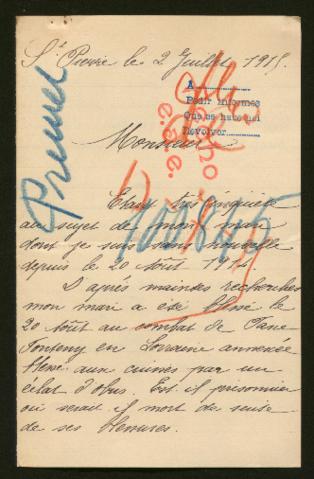 St Pierre le 2 Juillet 1915.
A
Pedir informes
Que se hate aqui
Devolver
Premer
Monsieur
Etant très inquiète
au sujet de mon mari
dont je suis sans nouvelle
depuis le 20 Août 1914.
D'après maintes recherches
mon mari a été blessé le
20 Août au combat de Fane
Fonteny en Lorraine annexée
blessé aux cuisses par un
éclat d'obus. Est il prisonnier
ou serait il mort de suite
de ses blessures.